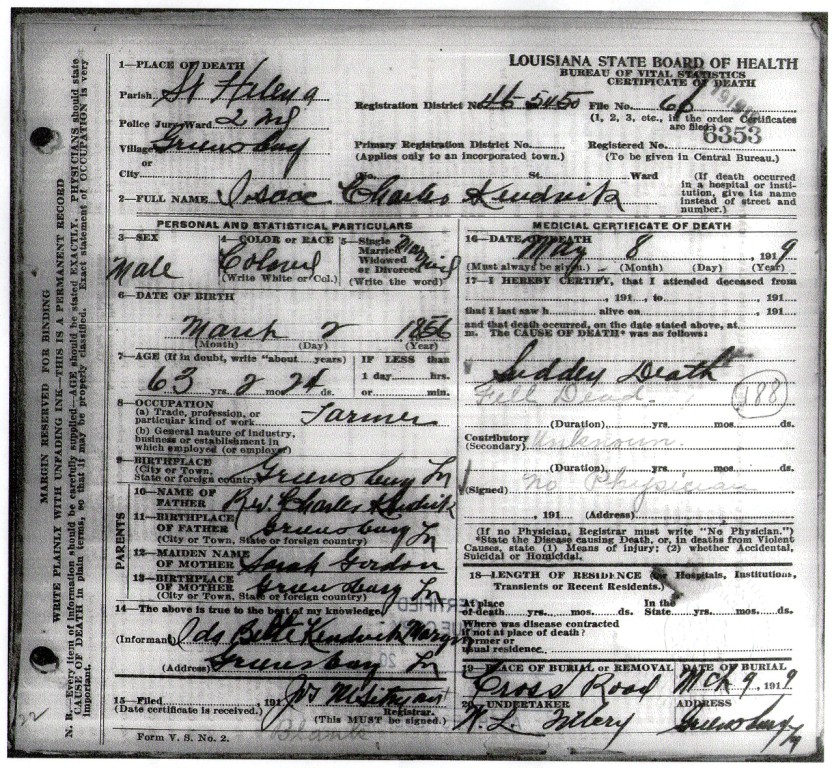 MARGIN RESERVED FOR BINDING
WRITE PLAINLY WITH UNFADING INK—THIS IS A PERMANENT RECORD
N. B.—Every item of information should be carefully supplied—AGE should be stated EXACTLY. PHYSICIANS should state
CAUSE OF DEATH in plain terms, so that it may be properly classified. Exact statement of OCCUPATION is very
important.
LOUISIANA STATE BOARD OF HEALTH
BUREAU OF VITAL STATISTICS
CERTIFICATE OF DEATH
1—PLACE OF DEATH
Parish St Helena
Registration District No. 46-5450 File No. 68
(1, 2, 3, etc., in the order Certificates
are filed.)
Police Jury Ward 2 nd
6353
Village Greensburg
Primary Registration District No. Registered No.
or
(Applies only to an incorporated town.) (To be given in Central Bureau.)
City No. St. Ward
(If death occurred
in a hospital or insti-
tution, give its name
instead of street and
number.)
2—FULL NAME Isaac Charles Kendrick
PERSONAL AND STATISTICAL PARTICULARS
3—SEX Male
4—COLOR or RACE Colored
(Write White or Col.)
5—Single
Married
Widowed
or Divorced Married
(Write the word)
6—DATE OF BIRTH
March 2 1856
(Month) (Day) (Year)
7—AGE (If in doubt, write "about....years) IF LESS than
1 day hrs.
63 yrs. 2 mos. 24 ds. or min.
8—OCCUPATION
(a) Trade, profession, or
particular kind of work Farmer
(b) General nature of industry,
business or establishment in
which employed (or employer)
9—BIRTHPLACE
(City or Town,
State or foreign country) Greensburg La
PARENTS
10—NAME OF
FATHER Rev. Charles Kendrick
11—BIRTHPLACE
OF FATHER Greensburg La
(City or Town, State or foreign country)
12—MAIDEN NAME
OF MOTHER Sarah Gordon
13—BIRTHPLACE
OF MOTHER Greensburg La
(City or Town, State or foreign country)
14—The above is true to the best of my knowledge.
(Informant) Ida Belle Kendrick
(Address) Greensburg La
15—Filed , 191
(Date certificate is received.)
Registrar.
(This MUST be signed.)
Form V. S. No. 2.
Blank
22
MEDICAL CERTIFICATE OF DEATH
16—DATE OF DEATH 8, 1919
(Must always be given.) (Month) (Day) (Year)
17—I HEREBY CERTIFY, that I attended deceased from
, 191 , to , 191
that I last saw h alive on , 191
and that death occurred, on the date stated above, at
m. The CAUSE OF DEATH* was as follows:
Sudden Death
Fell Dead.
188
(Duration) yrs. mos. ds.
Contributory Unknown.
(Secondary)
(Duration) yrs. mos. ds.
(Signed) No Physician
, 191 (Address)
(If no Physician, Registrar must write "No Physician.")
*State the Disease causing Death, or, in deaths from Violent
Causes, state (1) Means of injury; (2) whether Accidental,
Suicidal or Homicidal.
18—LENGTH OF RESIDENCE (For Hospitals, Institutions,
Transients or Recent Residents.)
At place In the
of death yrs. mos. ds. State yrs. mos. ds.
Where was disease contracted
if not at place of death?
Former or
usual residence
19—PLACE OF BURIAL or REMOVAL DATE OF BURIAL
Cross Road Mch 9, 1919
20—UNDERTAKER ADDRESS
Greensburg